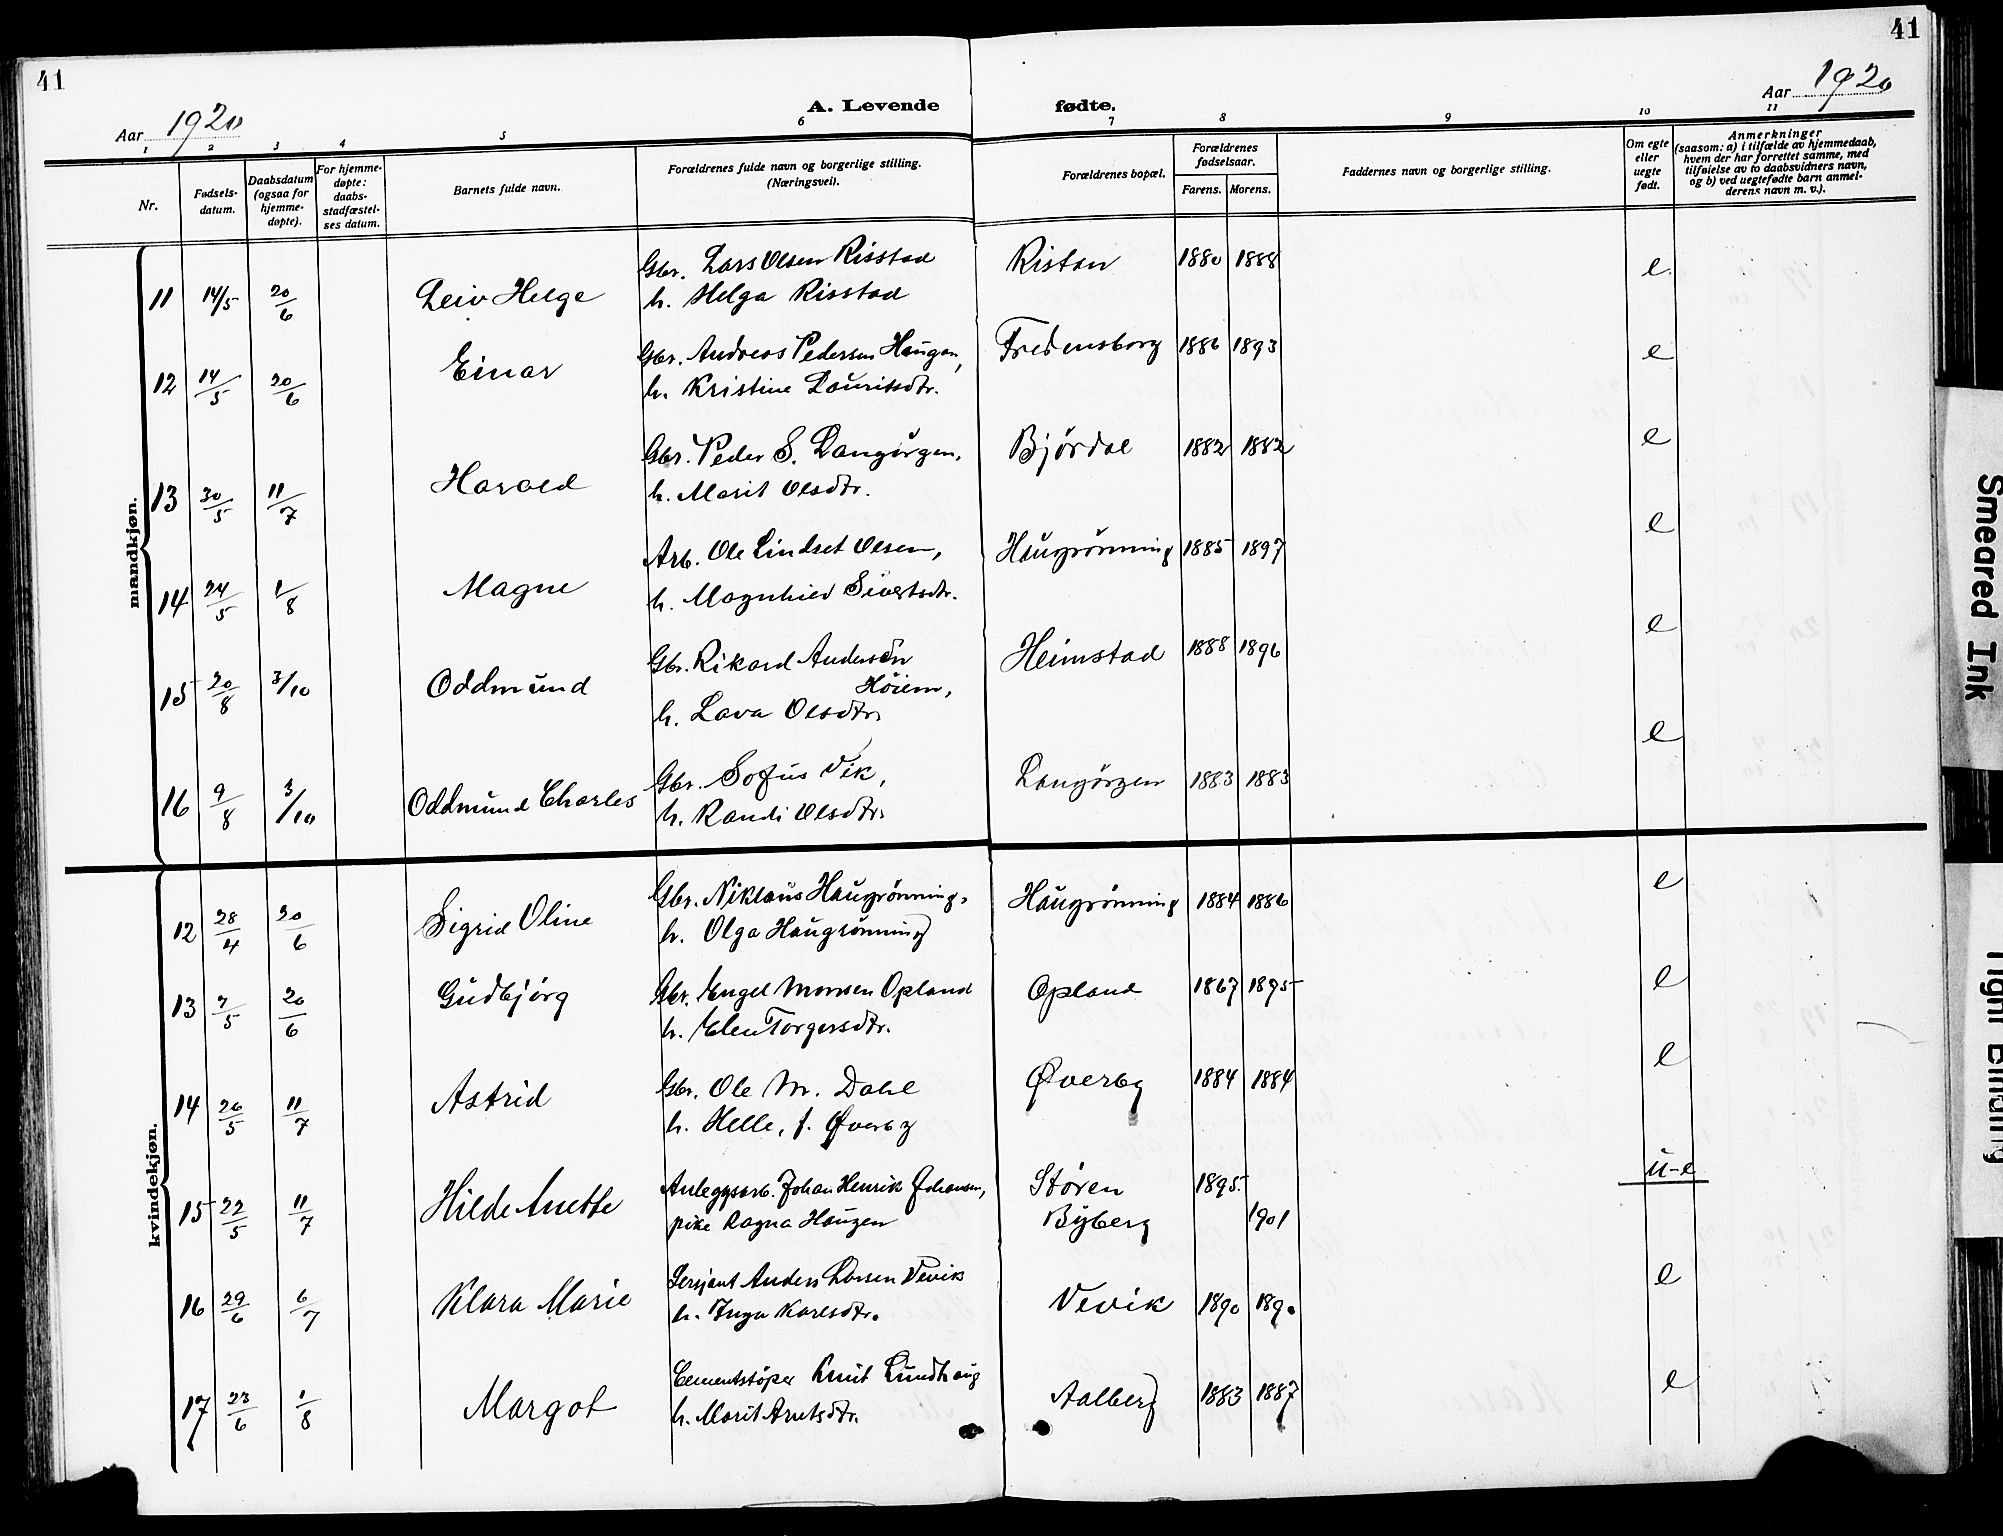 41
41
Aar 1920
A. Levende
fødte.
Aar 1920
1 2 3 4 5 6 7 8 9 10 11
Nr.
Fødsels-
datum.
Daabsdatum
(ogsaa for
hjemme-
døpte).
For hjemme-
døpte:
daabs-
stadfæstel-
ses datum.
Barnets fulde navn.
Forældrenes fulde navn og borgerlige stilling.
(Næringsvei).
Forældrenes bopæl.
Forældrenes
fødselsaar.
Farens. Morens.
Faddernes navn og borgerlige stilling.
Om egte
eller
uegte
født.
Anmerkninger
(saasom: a) i tilfælde av hjemmedaab,
hvem der har forrettet samme, med
tilføielse av to daabsvidners navn,
og b) ved uegtefødte barn anmel-
derens navn m. v.).
mandkjøn.
Gbr. Lars Olsen Risstad Ristan 1880 1888 e
11 14/5 20/6 Leiv Helge h. Helga Risstad
Gbr. Andreas Pedersen Haugen, Fredensborg 1886 1893 e
12 14/5 20/6 Einar h. Kristine Lauritsdtr.
Gbr. Peder S. Langørgen, Bjørdal 1882 1882 e
13 30/5 11/7 Harald h. Marit Olsdtr.
Arb. Ole Lindset Olsen, Haugrønning 1885 1897 e
14 24/5 1/8 Magne h. Magnhild Sivertsdtr.
Gbr. Rikard Andersen Heimstad 1888 1896 e
Høiem,
15 20/8 3/10 Oddmund h. Lava Olsdtr.
Gbr. Sofus Vik, Langørgen 1883 1883 e
16 9/8 3/10 Oddmund Charles h. Randi Olsdtr.
kvindekjøn.
Gbr. Niklaus Haugrønning, Haugrønning 1884 1886 e
12 28/4 20/6 Sigrid Oline h. Olga Haugrønning
Gbr. Engel Monsen Opland Opland 1867 1895 e
13 7/5 20/6 Gudbjørg h. Elen Torgersdtr.
Gbr. Ole M. Dahl Øverby 1884 1884 e
14 26/5 11/7 Astrid h. Helle, f. Øverby
Anleggsarb. Johan Henrik Johansen, Støren 1895 u-e
15 22/5 11/7 Hilde Anette pike Ragna Haugen Byberg 1901
Sersjant Anders Larsen Vevik e
16 29/6 6/7 Klara Marie h. Inga Karlsdtr. Vevik 1890 1890
Cementstøper Knut Lundhaug Aalberg 1883 1887 e
17 23/6 1/8 Margot h. Marit Arntsdtr.
Smeared Ink
Tight Binding